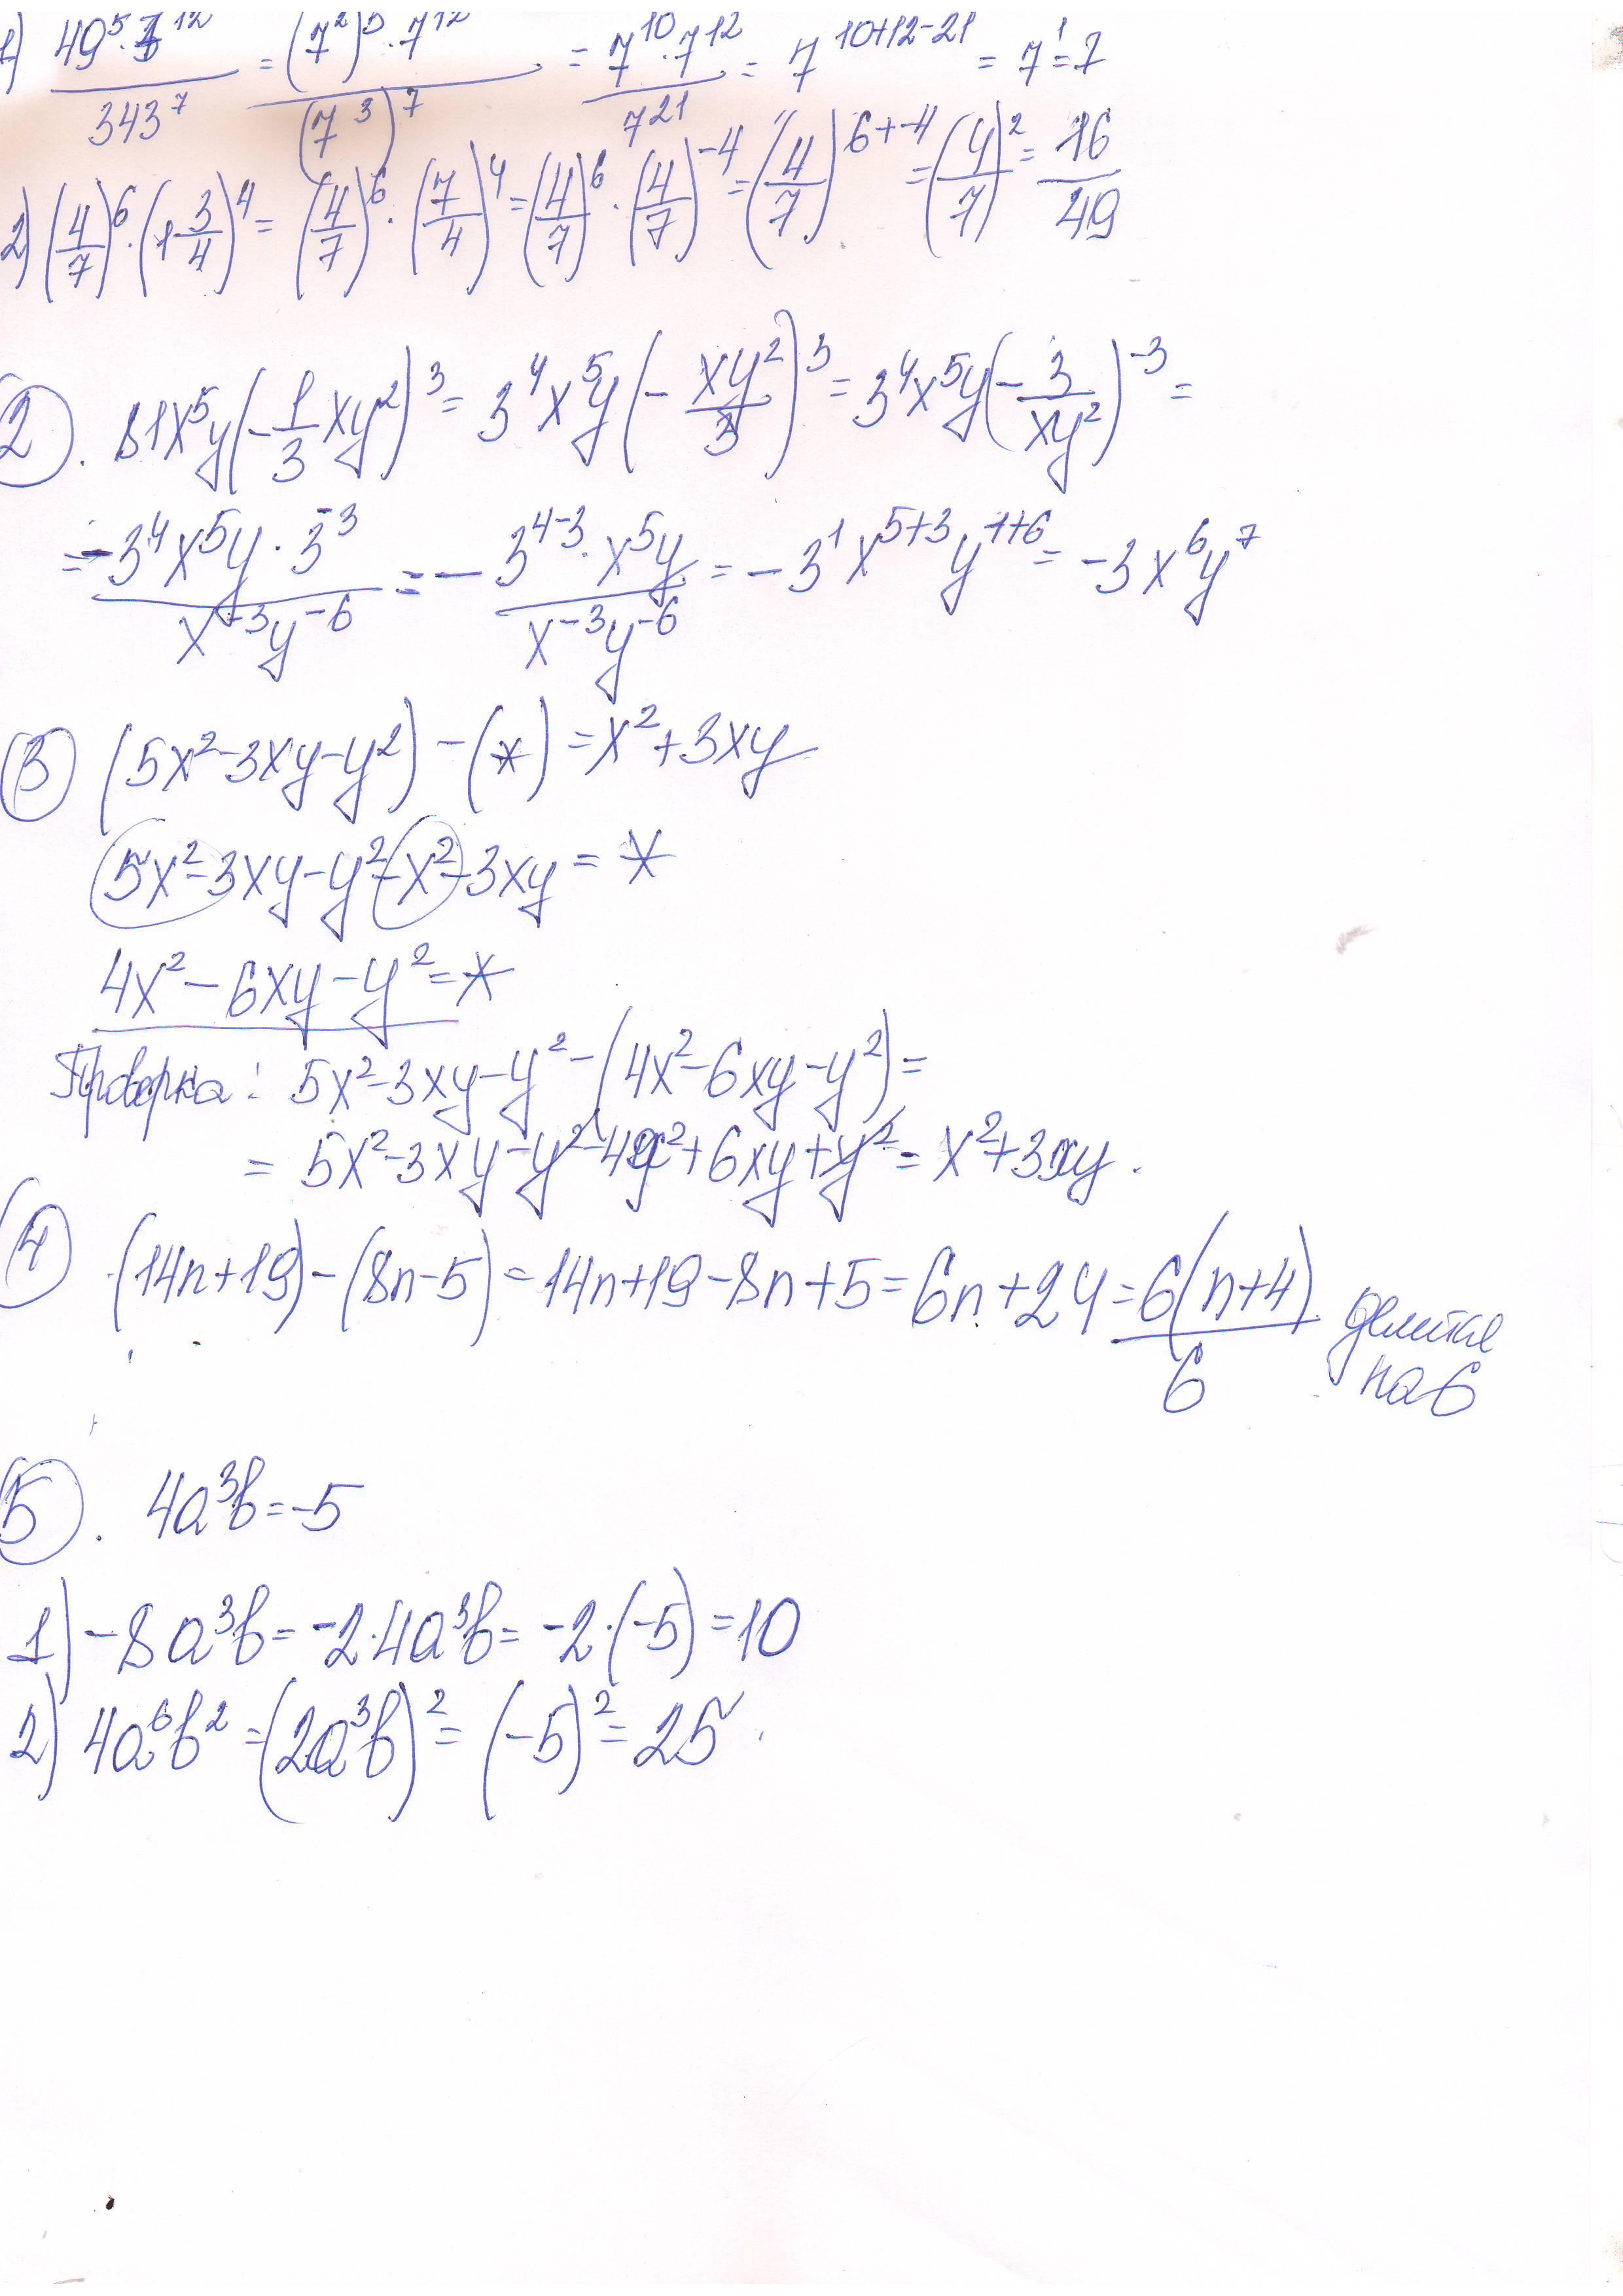 1) 49⁵·7¹²/343⁷ = (7²)⁵·7¹²/(7³)⁷ = 7¹⁰·7¹²/7²¹ = 7¹⁰⁺¹²⁻²¹ = 7¹=7
2) (4/7)⁶·(1 3/4)⁴ = (4/7)⁶·(7/4)⁴ = (4/7)⁶·(4/7)⁻⁴ = (4/7)⁶⁺⁻⁴ = (4/7)² = 16/49
2. 81x⁵y(-1/3 xy²)³ = 3⁴x⁵y(-xy²/3)³ = 3⁴x⁵y(-3/xy²)⁻³ =
= -3⁴x⁵y·3⁻³/x⁻³y⁻⁶ = - 3⁴⁻³·x⁵y/x⁻³y⁻⁶ = -3¹x⁵⁺³y¹⁺⁶ = -3x⁶y⁷
3 (5x²-3xy-y²) - (*) = x²+3xy
5x²-3xy-y²-x²-3xy = *
4x²-6xy-y² = *
Проверка: 5x²-3xy-y²-(4x²-6xy-y²) =
= 5x²-3xy-y²-4x²+6xy+y² = x²+3xy.
4 (14n+19)-(8n-5) = 14n+19-8n+5 = 6n+24 = 6(n+4)/6 делится
на 6
5. 4a³b = -5
1) -8a³b = -2·4a³b = -2·(-5) = 10
2) 4a⁶b² = (2a³b)² = (-5)² = 25